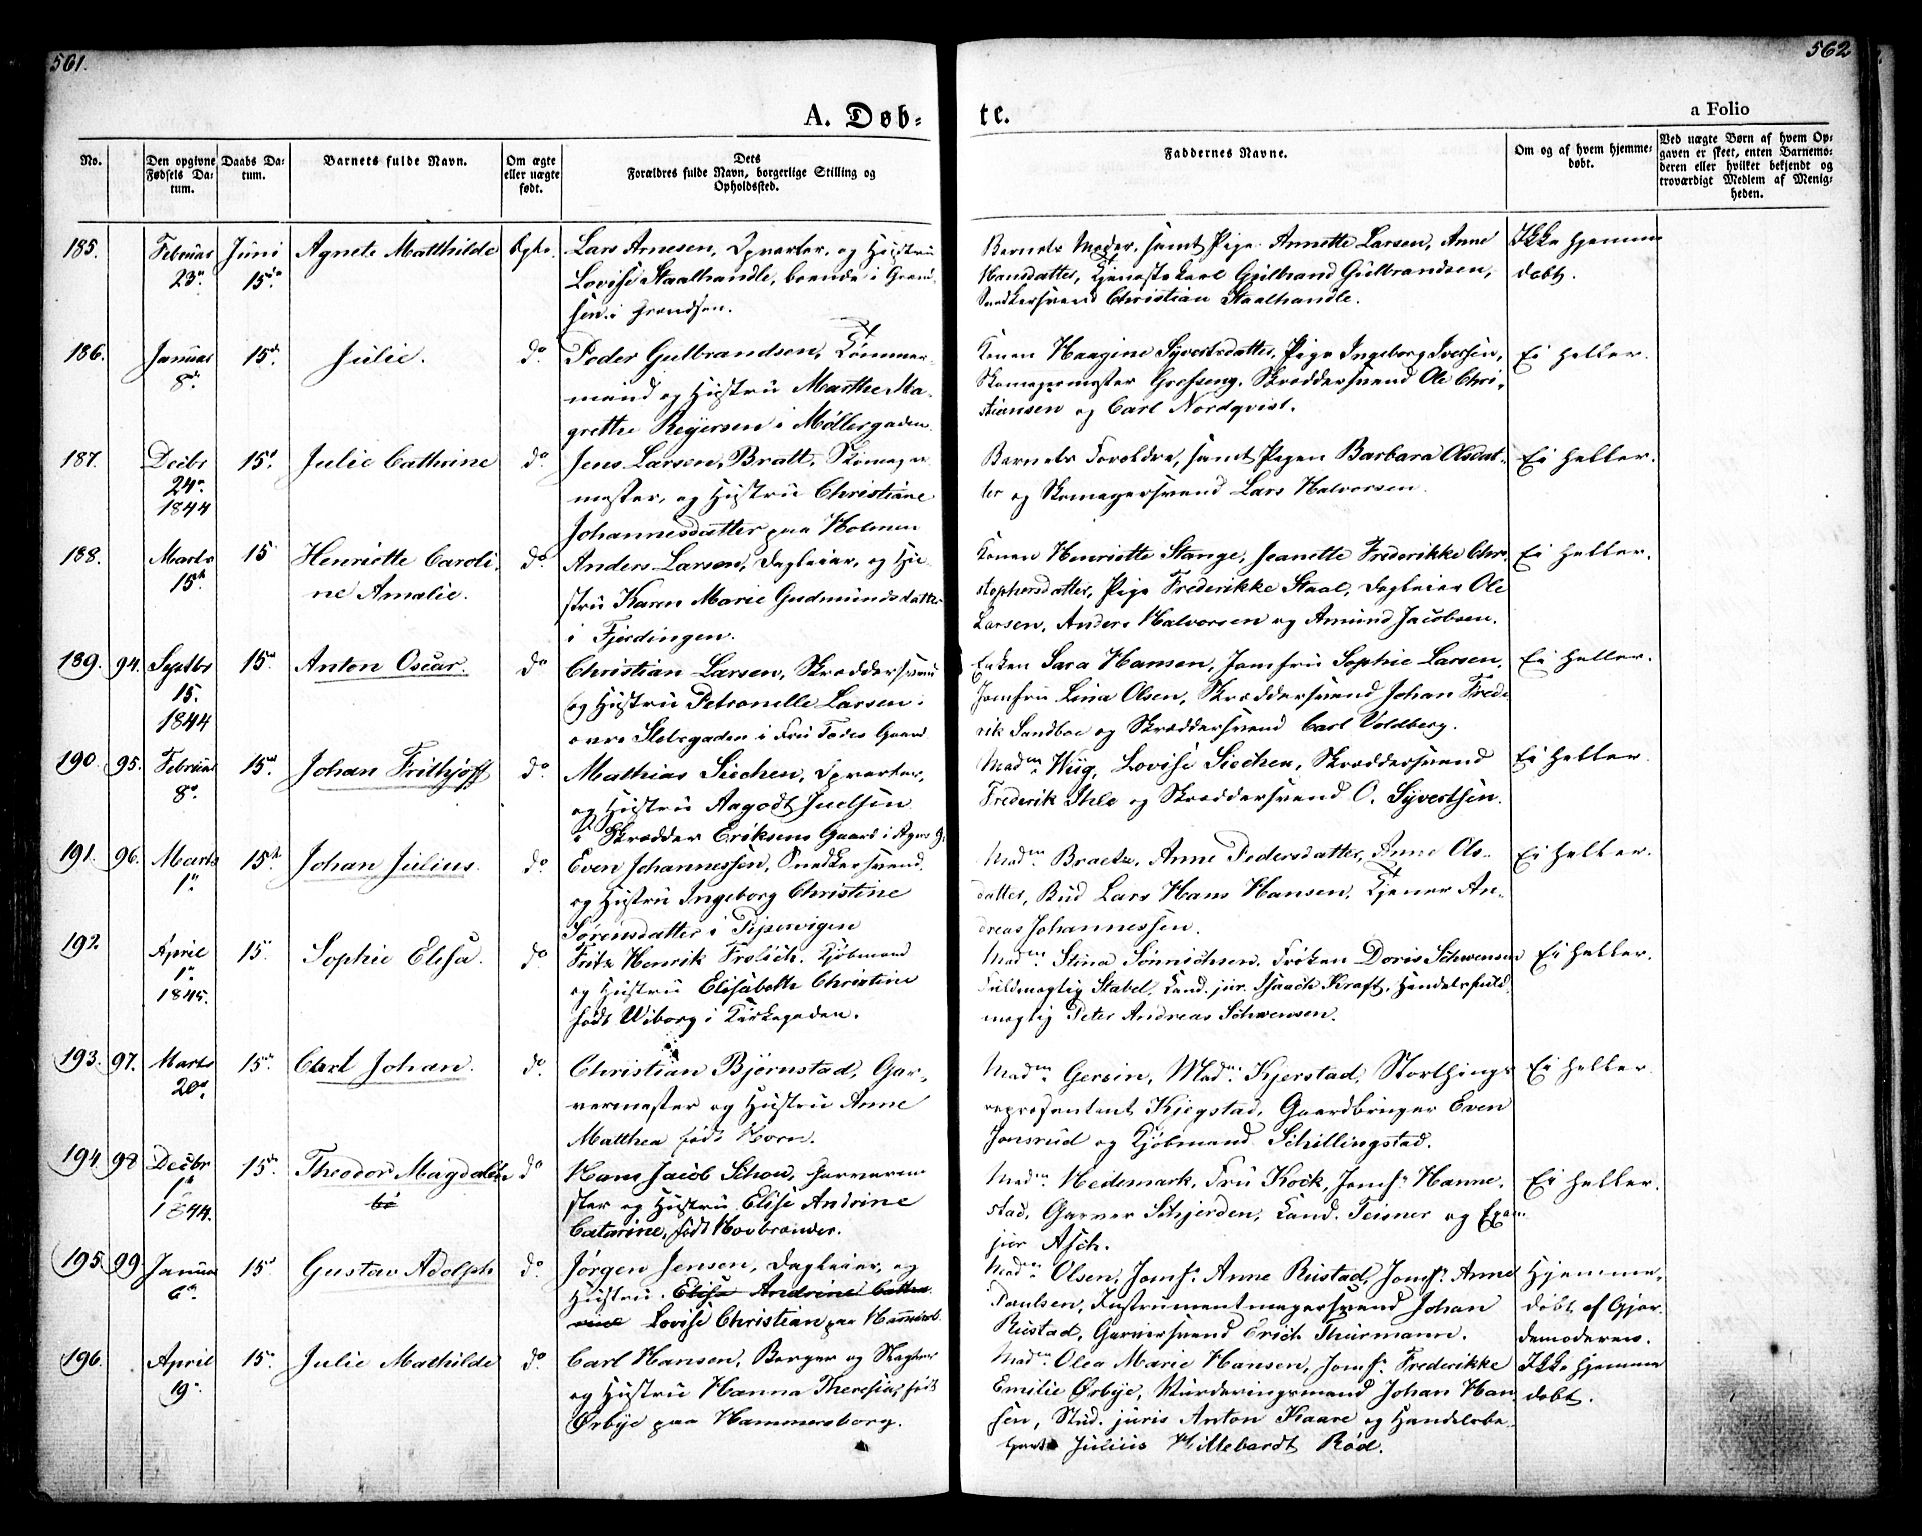 561.
562
A. Døb=
te.
a Folio
No.
Den opgivne Fødsels Datum.
Daabs Datum.
Barnets fulde Navn.
Om ægte eller uægte født.
Dets Forældres fulde Navn, borgerlige Stilling og Opholdssted.
Faddernes Navne.
Om og af hvem hjemmedøbt.
Ved uægte Børn af hvem Opgaven er skeet, enten Barnemoderen eller hvilket bekjendt og troværdigt Medlem af Menigheden.
185. Februar 23de Juni 15de Agnete Matthilde Ægte.
Lars Arnesen, Opvarter, og Hustru
Lovise Staalhandle, boende i Grænd-
sen. i Grændsen.
Barnets Moder, samt Pige Annette Larsen, Anne
Hansdatter, Tjenestekarl Gulbrand Gulbrandsen,
Snedkersvend Christian Staalhandle.
Ikke hjemme
døbt.
186. Januar 8de 15de Julie. do
Peder Gulbrandsen, Tømmer-
mand og Hustru Marthe Ma-
grethe Reyersen i Møllergaden
Konen Haagine Syvertsdatter, Pige Ingeborg Iversen,
Skomagermester Grefseng, Skræddersvend Ole Chri-
stiansen og Carl Nordqvist.
Ei heller.
187. Decbr 24de 1844 15d Julie Cathrine do
Jens Larsen, Bratt, Skomager
mester, og Hustru Christiane
Johannesdatter paa Holmen
Barnets Forældre, samt Pigen Barbara Olsdat-
ter og Skomagersvend Lars Halvorsen.
Ei heller.
188. Marts 15de 15 Henriette Caroli-
ne Amalie. do
Anders Larsen, Dagleier, og Hu
stru Karen Marie Gudmundsdatter
i Fjerdingen.
Konen Henriette Stange, Jeanette Frederikke Chri-
stophersdatter, Pige Frederikke Staal, Dagleier Ole
Larsen, Anders Halvorsen og Amund Jacobsen.
Ei heller.
189. 94. Septbr 15. 1844 15de Anton Oscar. do
Christian Larsen, Skræddersvend
og Hustru Petronelle Larsen i
øvre Slotsgaden i Fru Fades Gaard
Enken Sara Hansen, Jomfru Sophie Larsen,
Jomfru Lina Olsen, Skræddersvend Johan Frede
rik Sandboe og Skræddersvend Carl Voldberg.
Ei heller.
190 95. Februar 8de 15de Johan Frithjoff do
Mathias Siechen, Opvarter,
og Hustru Aagodt Juelsen
i Skrædder Eriksens Gaard i Agers G.
Madm Wiig, Lovise Siechen, Skræddersvend
Frederik Ihle og Skræddersvend O. Syvertsen.
Ei heller
191. 96. Marts 1te 15de Johan Julius. do
Even Johannessen, Snedkersvend
og Hustru Ingeborg Christine
Sørensdatter i Pipervigen
Madm Braetz, Anne Pedersdatter, Anne Ols-
datter, Bud Lars Hans Hansen, Tjener An-
dreas Johannessen.
Ei heller.
192 April 1te 1845. 15. Sophie Elisa. do
Fritz Henrik Frølich. Kjøbmand
og Hustru Elisabeth Christine
født Wiborg i Kirkegaden.
Madm Stina Sønnichsen, Frøken Doris Schwensen
Fuldmægtig Stabel, Kand. jur. Isaach Kraft, Handelsfuld-
mægtig Peter Andreas Schwensen.
Ei heller.
193. 97. Marts 20de 15de Carl Johan. do
Christian Bjernstad, Gar-
vermester og Hustru Anne
Matthea født Horn.
Madm Gersin, Madm Kjerstad, Storthings-
repræsentant Kiegstad, Gaardbruger Even
Jonsrud og Kjøbmand Schillingstad.
Ei heller.
194. 98 Decbr 1te 1844. 15de Theodor Magdalin do
Hans Jacob Schou, Garverme
ster og Hustru Elise Andrine
Catarine, født Hovbrænder.
Madm Hedemark, Fru Koch, Jomfr Hanne-
stad, Garver Schjerden, Kand. Teisner og Exam
jur Asch.
Ei heller.
195. 99. Januar 6te 15d Gustav Adolph do
Jørgen Jensen, Dagleier, og
Hustru Elise Andrine Catha
rine Lovise Christian paa Hammersb.
Madm Olsen, Jomfr Anne Rustad, Jomfr Anne
Paulsen, Instrumentmagersvend Johan
Rustad, Garversvend Erich Thurmann.
Hjemme-
døbt af Gjor-
demoderen.
196. April 19de 15de Julie Mathilde do
Carl Hansen, Borger og Slagter
og Hustru Hanna Theresia, født
Ørbye paa Hammersborg.
Madm Olea Marie Hansen, Jomfr Frederikke
Emilie Ørbye, Vurderingsmand Johan Han
sen, Stud. juris Anton Kaare og Handelsbe-
tjent Julius Hillebardt Rød.
Ikke hjemme
døbt.